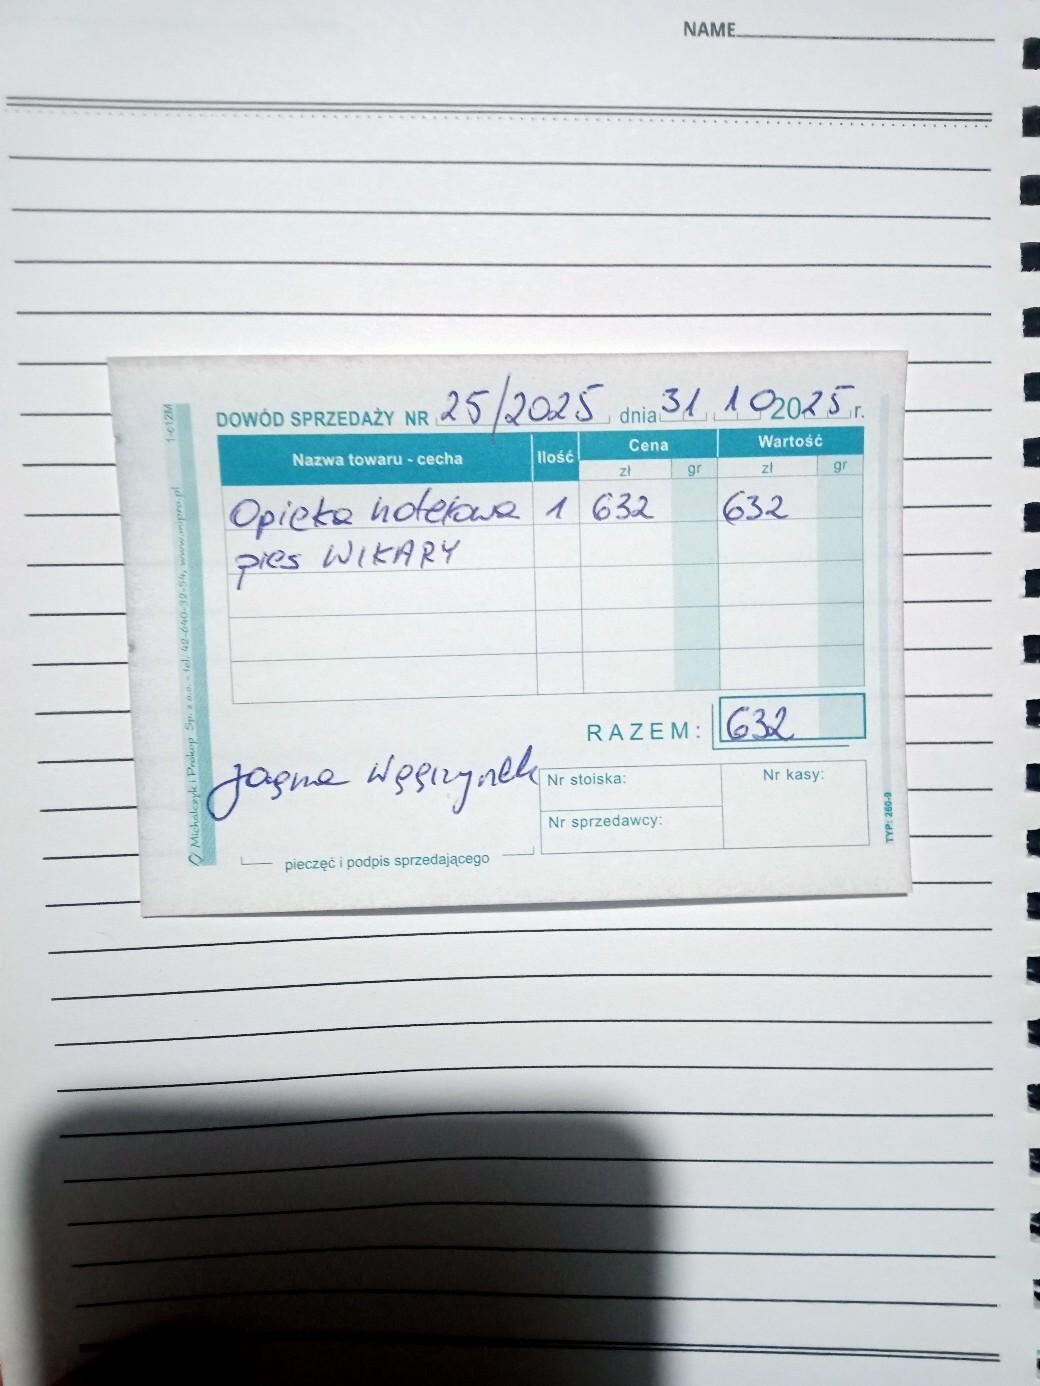 NAME
DOWÓD SPRZEDAŻY NR 25/2025 dnia 31 10 2025 r.
Nazwa towaru - cecha Ilość Cena Wartość
zł gr zł gr
Opieka hotelowa 1 632 632
pies WIKARY
RAZEM: 632
Jagna Węgrzynek
Nr stoiska: Nr kasy:
Nr sprzedawcy:
pieczęć i podpis sprzedającego
1-012M
Michalczyk i Prokop Sp. z o.o. - tel. 42-640-32-54, www.mipro.pl
TYP: 260-9